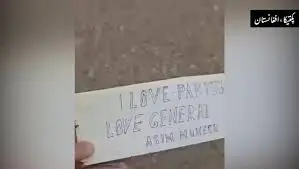 پکتیکا ، افغانستان
I LOVE
LOVE GENERAL
ASIM MUNEER